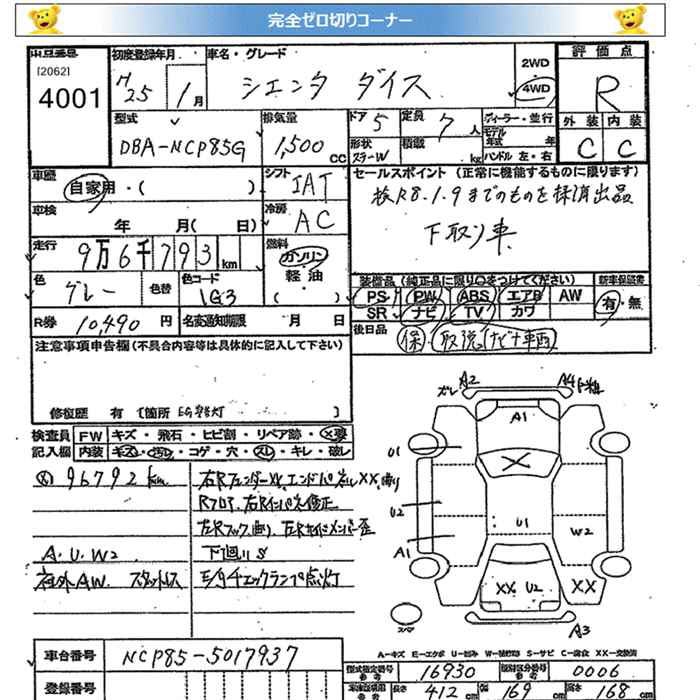 完全ゼロ切りコーナー
出品番号
[2062]
4001
初度登録年月
H25 1月
車名・グレード
シエンタ ダイス
2WD
4WD
評価点
R
外装 内装
C C
型式
DBA-NCP85G
排気量
1,500 cc
ドア 5
定員 7人
ディーラー・並行
モデル年式 年式
形状 ステーW
積載 kg
ハンドル 左・右
車歴
自家用・( )
シフト
IAT
セールスポイント (正常に機能するものに限ります)
検R8.1.9までのものを抹消出品
下取り車
車検
年 月( 日)
冷房
AC
走行
9万6千793km
燃料
ガソリン
軽油
( )
色
グレー
色替
色コード
1G3
装備品 (純正品に限り○をつけてください)
新車保証書
PS PW ABS エアB AW
SR ナビ TV カワ
有・無
R券 10,490円
名変通知期限 月 日
後日品
保 取説(ナビナ車両)
注意事項申告欄(不具合内容等は具体的に記入して下さい)
修復歴 有 [箇所 EG警灯 ]
検査員記入欄
FW キズ・飛石・ヒビ割・リペア跡・X要
内装 キズ・汚レ・コゲ・穴・スレ・キレ・破レ
96792km
右Rフェンダー XX、エンドパネル XX、曲り
Rフロア、右Rインパネ修正
左Rフック曲り、左Rサイドメンバー歪
A.U.W2
下廻りS
社外AW スタッドレス
E/gチェックランプ点灯
A2
A4
A1
U1
U2
A1
U1
W2
XX U2
XX
A3
スペア
A-キズ E-エクボ U-凹み W-補修跡 S-サビ C-腐食 XX-交換済
車台番号 NCP85-5017937
登録番号
型式指定番号 16930
類別区分番号 0006
長さ 412cm
幅 169cm
高さ 168cm